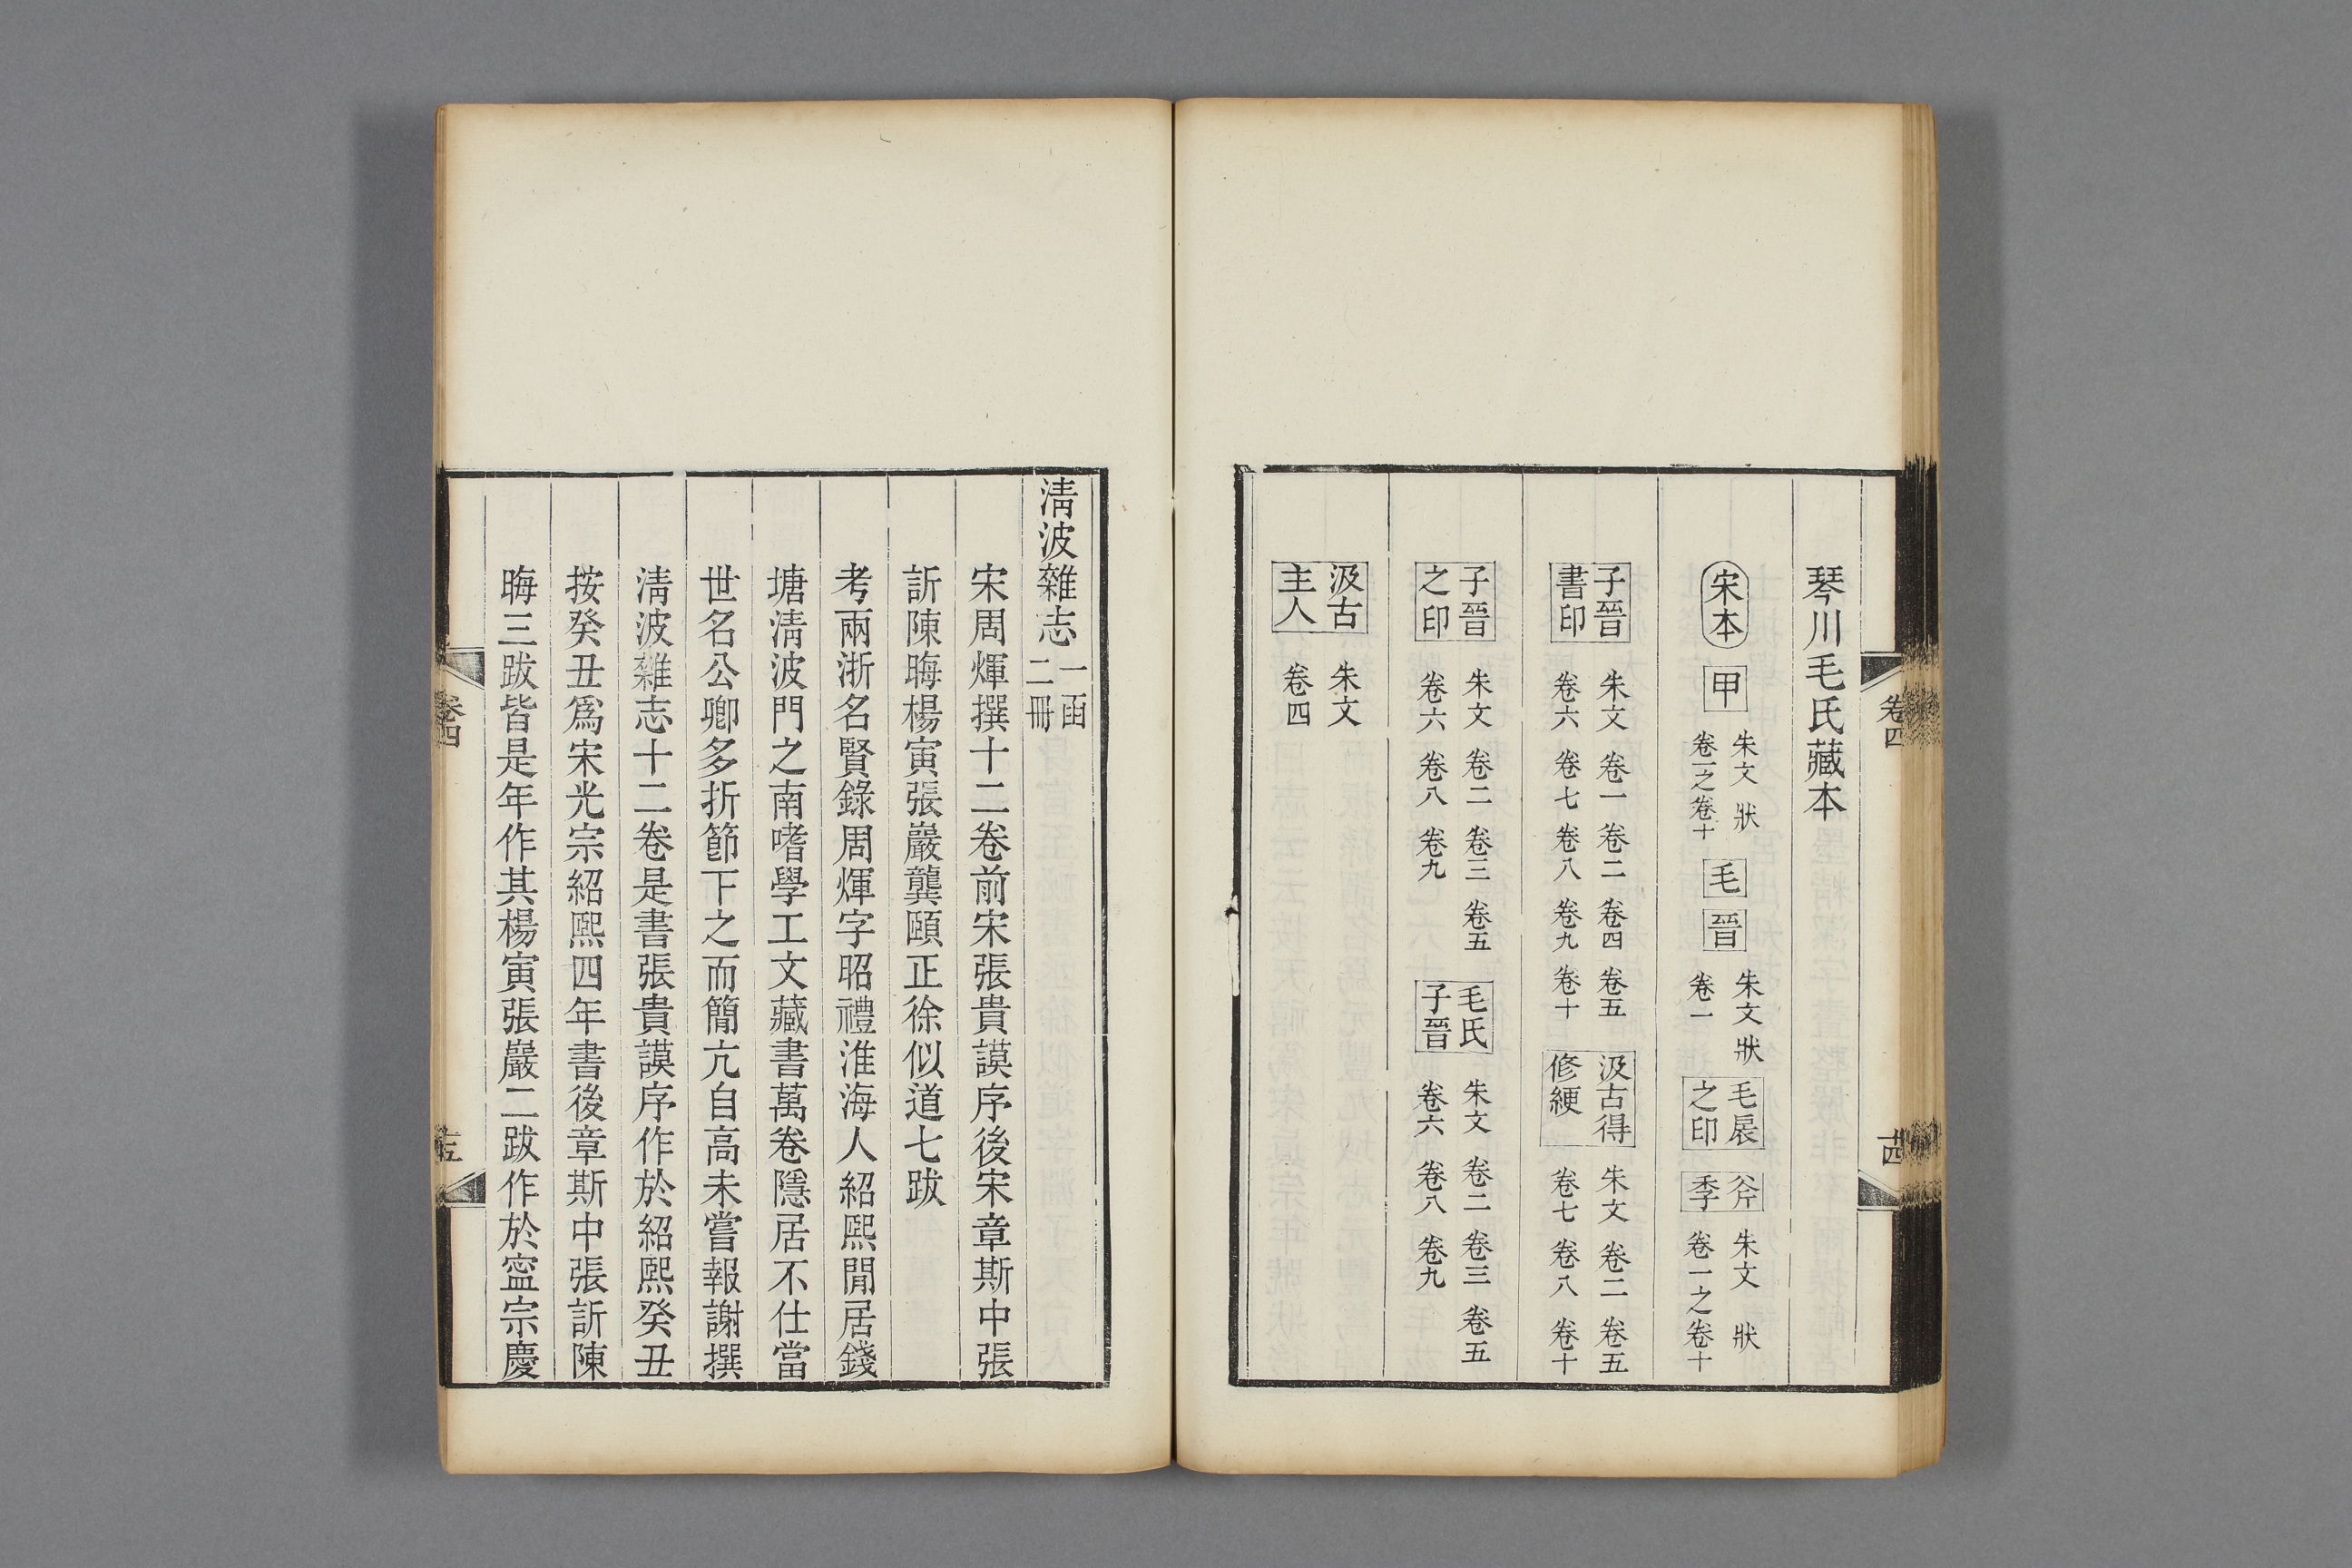 琴川毛氏藏本
宋本 甲 朱文 狀 卷一之卷十 毛 晉 朱文 狀 卷一 毛扆之印 斧季 朱文 狀 卷一之卷十
子晉書印 朱文 卷一 卷二 卷四 卷五 卷六 卷七 卷八 卷九 卷十 汲古得修綆 朱文 卷二 卷五 卷七 卷八 卷十
子晉之印 朱文 卷二 卷三 卷五 卷六 卷八 卷九 毛氏子晉 朱文 卷二 卷三 卷五 卷六 卷八 卷九
汲古主人 朱文 卷四
卷四
十四
淸波雜志 一函二冊
宋周煇撰十二卷前宋張貴謨序後宋章斯中張
訢陳晦楊寅張巖龔頤正徐似道七跋
考兩浙名賢錄周煇字昭禮淮海人紹熙閒居錢
塘淸波門之南嗜學工文藏書萬卷隱居不仕當
世名公卿多折節下之而簡亢自高未嘗報謝撰
淸波雜志十二卷是書張貴謨序作於紹熙癸丑
按癸丑爲宋光宗紹熙四年書後章斯中張訢陳
晦三跋皆是年作其楊寅張巖二跋作於寍宗慶
卷四
十五